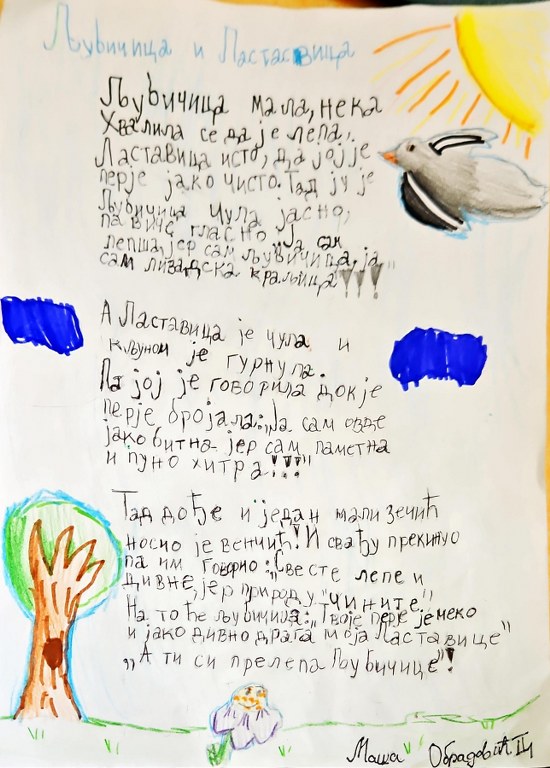 Љубичица и Ластавица
Љубичица мала, нека
хвалила се да је лепа.
Ластавица исто, да јој је
перје јако чисто. Тад ју је
Љубичица чула јасно,
па виче гласно „Ја сам
лепша, јер сам љубичица, ја
сам ливадска краљица"!!!
А Ластавица је чула и
кљуном је гурнула.
Па јој је говорила док је
перје бројала: „Ја сам овде
јако битна јер сам паметна
и пуно хитра!!!"
Тад дође и један мали зечић
носио је венчић! И свађу прекинуо
па им говорио: „Све сте лепе и
дивне, јер природу чините"
На то ће љубичица: „Твоје перје је меко
и јако дивно драга моја Ластавице"
„А ти си прелепа Љубичице"!
Маша Обрадовић II